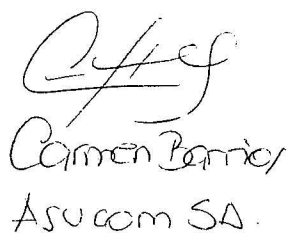 Carmen Barrios
Asucom SA.